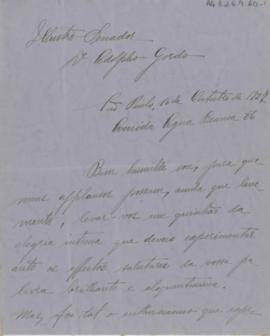 Illustre Senador
Dr Adolpho Gordo
São Paulo, 10 de Outubro de
Avenida Agua Branca 86
Bem humilde sou, para que
meus applausos possam, ainda que leve
mente, levar-vos um quinhão da
alegria intima que deveis experimentar
ante os effeitos salutares da vossa pa
lavra brilhante e eloquentissima.
Mas, foi tal o enthusiasmo que